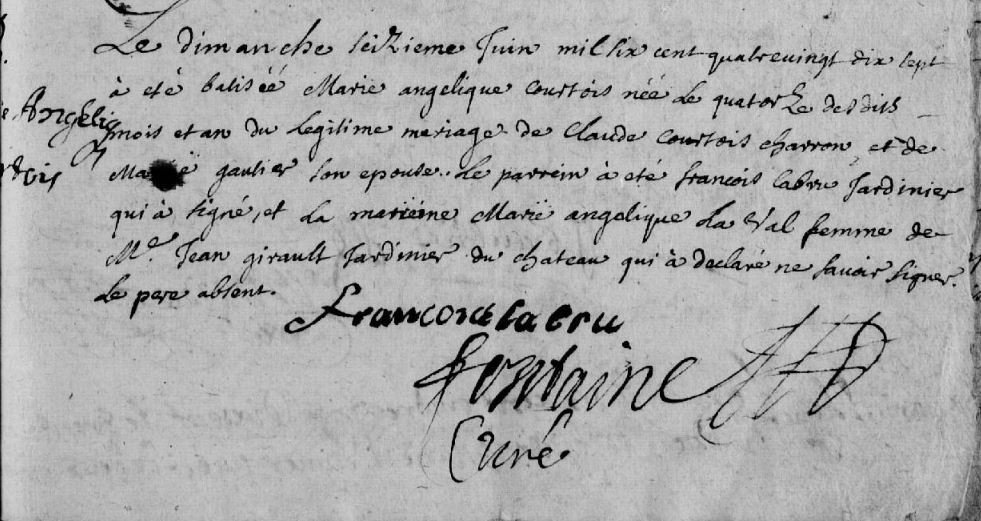 Le dimanche seizieme Juin mil six cent quatrevingt dix sept
à eté batiséé Marië angelique courtois néé le quatorze desdits
Angeliq
mois et an du legitime mariage de Claude courtois charron, et de
rtois
Marië gautier son epouse. Le parrein à eté françois labru Jardinier
qui à signé, et la mareine Marië angelique la Val femme de
Mr. Jean girault Jardinier du chateau qui à declaré ne savoir signer.
le pere absent.
francois labru
fontaine
Curé